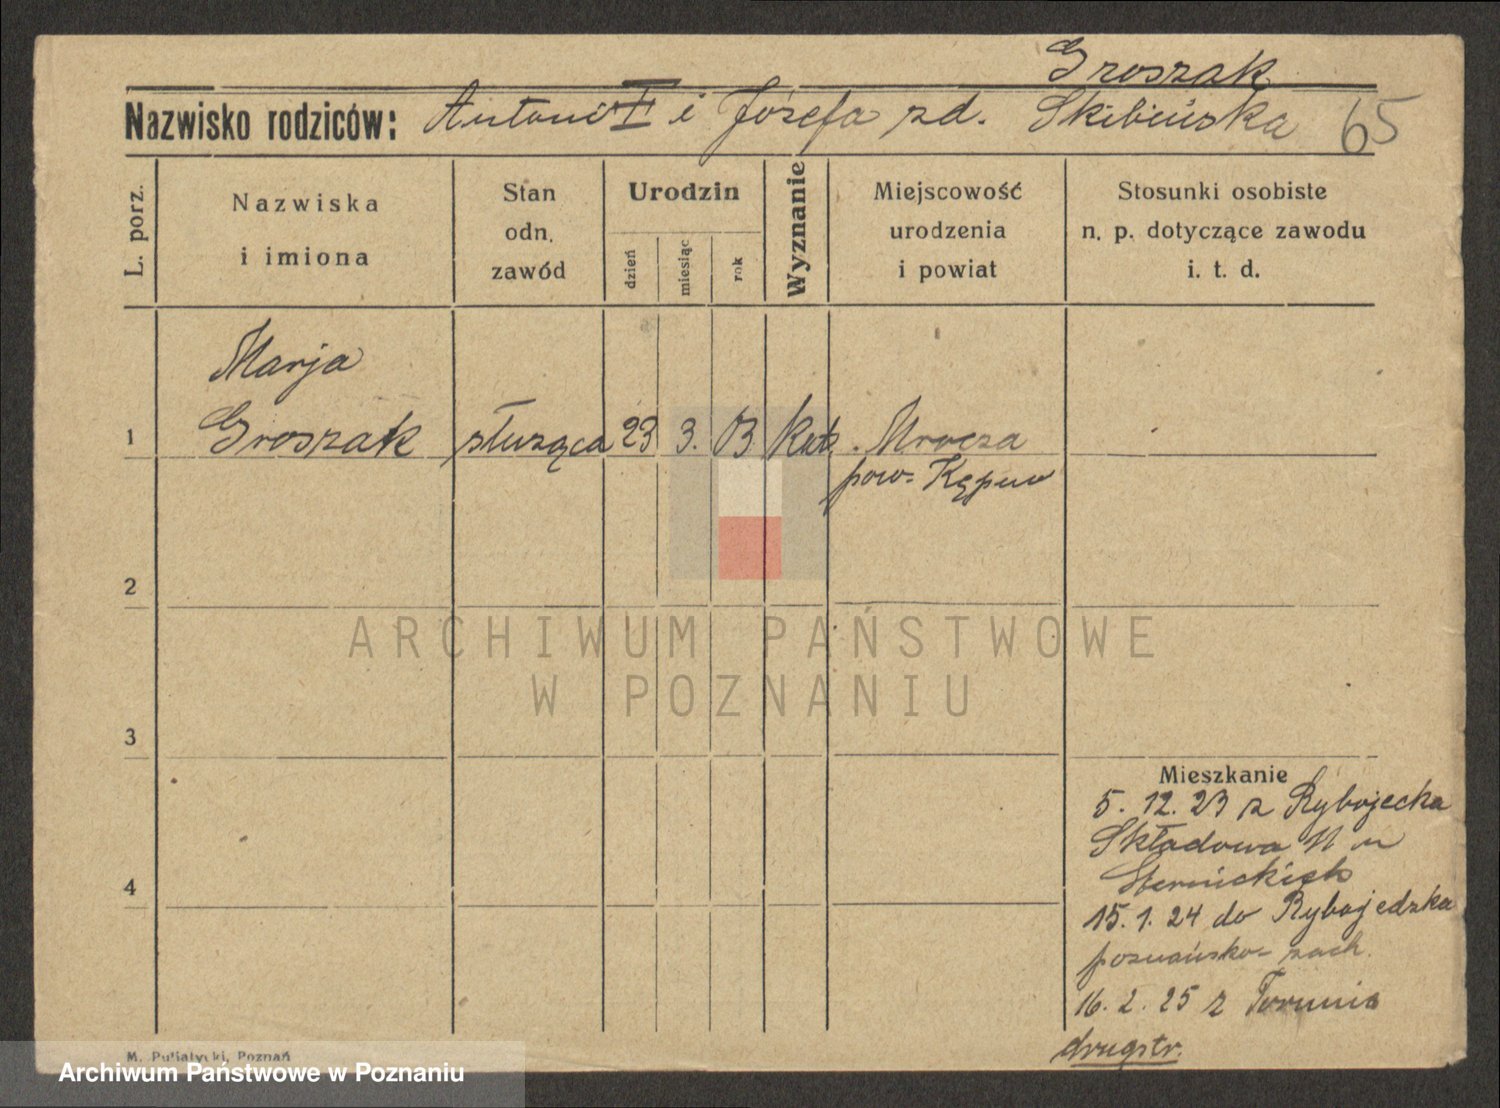 Groszak
Nazwisko rodziców: Antoni II i Józefa zd. Skibińska 65
L. porz.
Nazwiska
i imiona
Stan
odn.
zawód
Urodzin
dzień
miesiąc
rok
Wyznanie
Miejscowość
urodzenia
i powiat
Stosunki osobiste
n. p. dotyczące zawodu
i. t. d.
Marja
1 Groszak służąca 23 3. 03 kat. Mrocza
pow. Kępno
2
ARCHIWUM PAŃSTWOWE
W POZNANIU
3
Mieszkanie
5. 12. 23 z Rybojecka
Składowa 11 u
4
15. 1. 24 do Rybojedzka
poznańsko-zach.
16. 2. 25 z Torunia
drugstr.
M. Putiatycki, Poznań
Archiwum Państwowe w Poznaniu